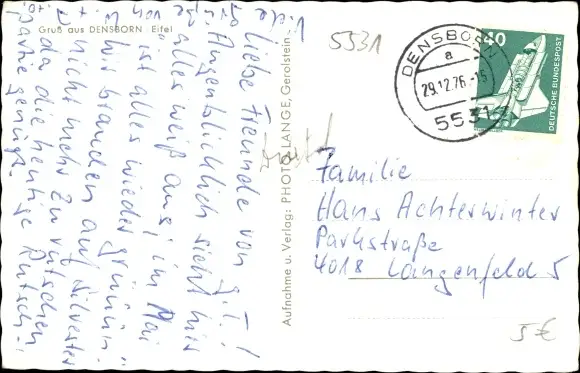 Gruß aus DENSBORN Eifel
Liebe Freunde von g. T.!
Augenblicklich sieht hier
alles weiß aus; im Mai
ist alles wieder grün!
Wir brauchen auf Silvester
nicht mehr zu rutschen
da die heutige Rutsch-
partie genügt.
Viele
von
Aufnahme u. Verlag: PHOTO-LANGE, Gerolstein
5531
DENSBORN
a
29.12.76.-15
5531
40
DEUTSCHE BUNDESPOST
Familie
Hans Achterwinter
Parkstraße
4018 Langenfeld 5
5 €